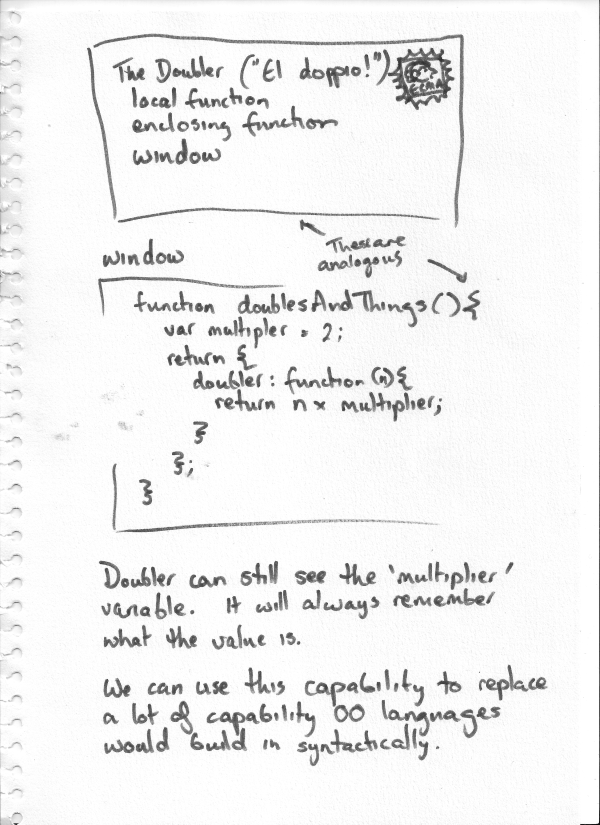 The Doubler ("El doppio!")
ECMA
local function
enclosing function
window
These are
analogous
window
function doublesAndThings(){
var multipler = 2;
return {
doubler: function (n){
return n x multiplier;
}
};
}
Doubler can still see the 'multiplier'
variable. It will always remember
what the value is.
We can use this capability to replace
a lot of capability OO languages
would build in syntactically.